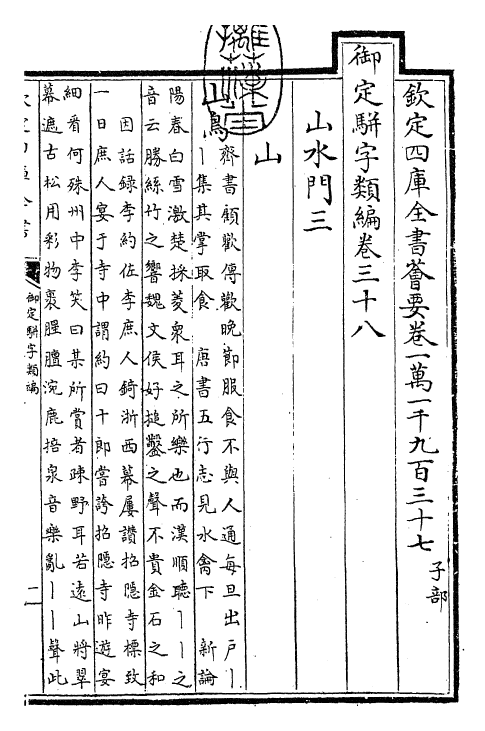 欽定四庫全書薈要卷一萬一千九百三十七 子部
御定駢字類編卷三十八
山水門三
山
山鳥 齊書顧歡傳歡晚節服食不與人通每旦出戶丨
丨集其掌取食 唐書五行志見水禽下 新論
陽春白雪激楚採菱衆耳之所樂也而漢順聽丨丨之
音云勝絲竹之響魏文侯好搥鑿之聲不貴金石之和
因話錄李約佐李庶人錡浙西幕屢讚招隱寺標致
一日庶人宴于寺中謂約曰十郎嘗誇招隱寺昨遊宴
細看何殊州中李笑曰某所賞者疎野耳若遠山將翠
幕遮古松用彩物裹腥膻涴鹿掊泉音樂亂丨丨聲此
御定駢字類編